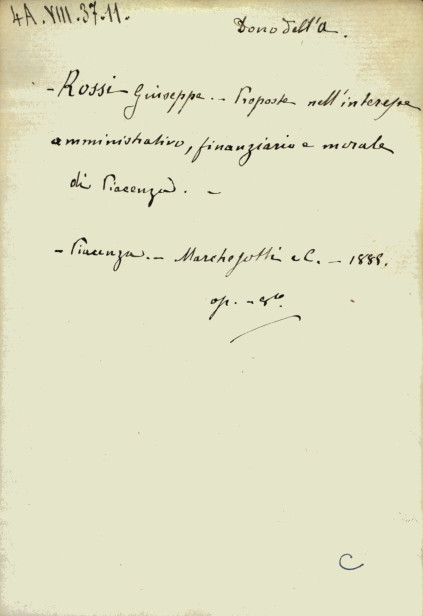 4A.VIII.37.11.
Dono dell'A.
- Rossi Giuseppe. - Proposte nell'interesse
amministrativo, finanziario e morale
di Piacenza. -
- Piacenza. - Marchesotti e C. - 1888.
op. - 8º
C